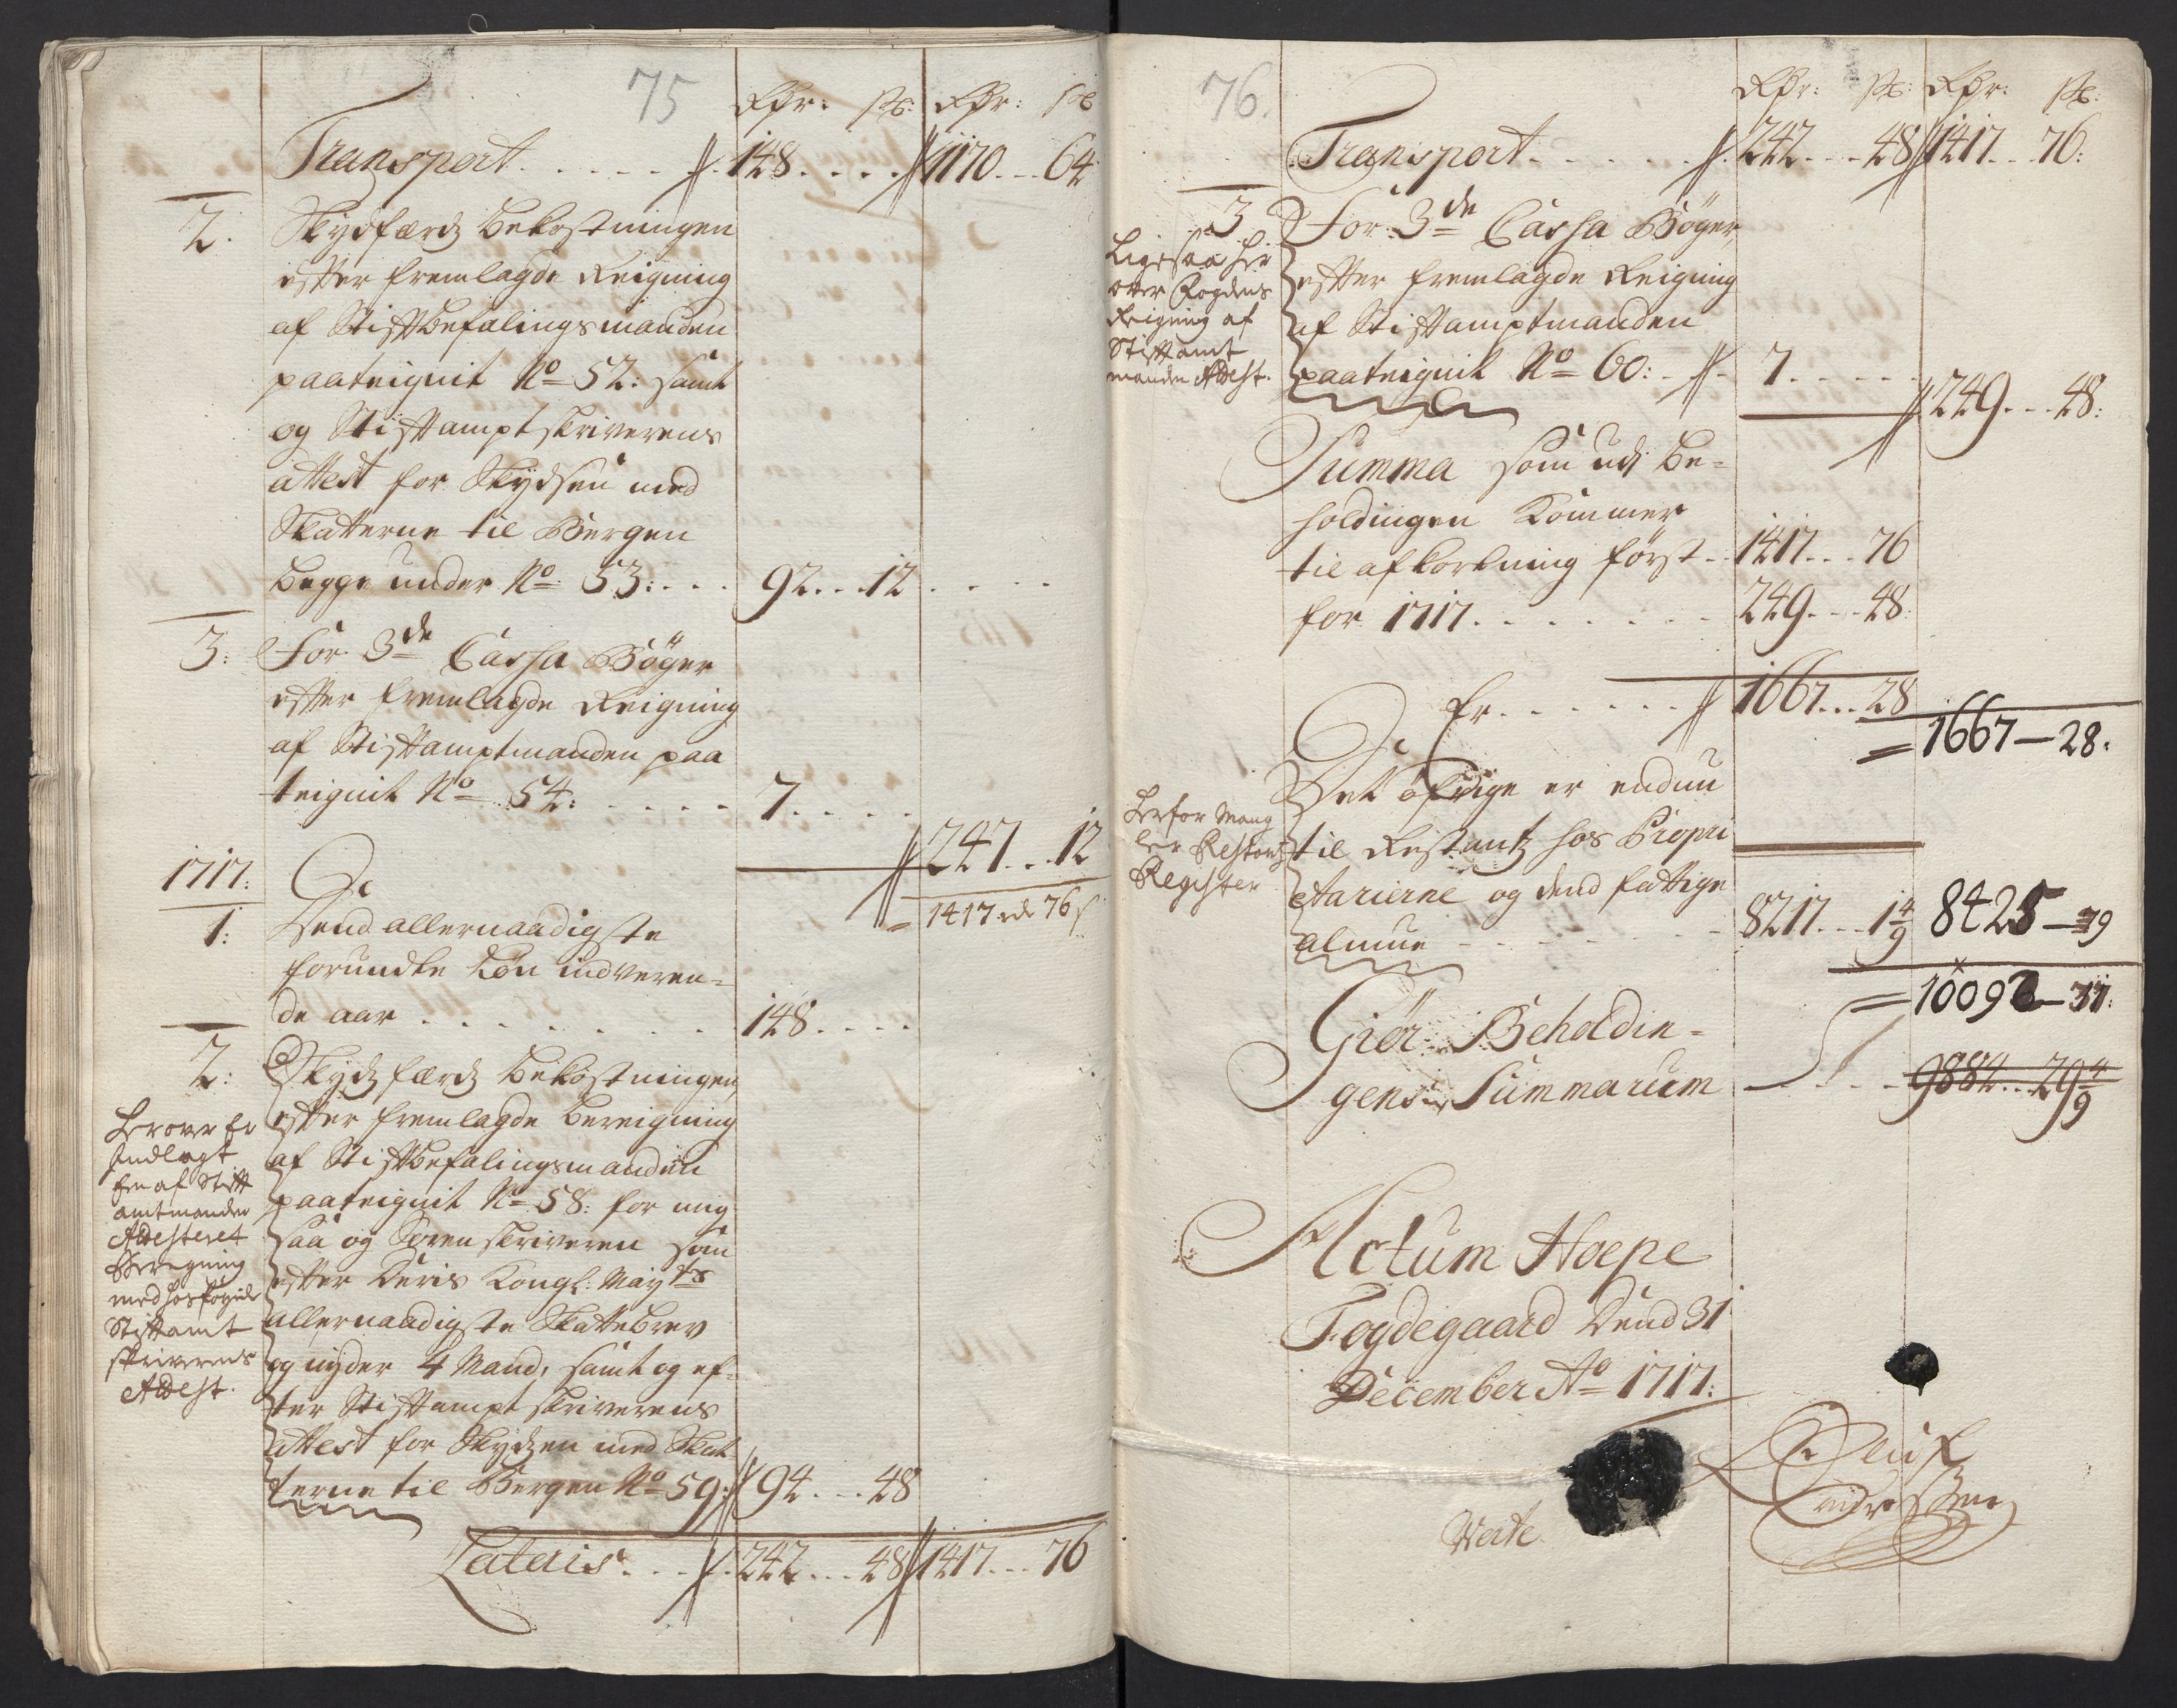 75
Rdr: sk: Rdr: sk
Transport . . . . . 148 . . . . 1170 . . . 64
2. Skydsfærdz bekostningen
efter fremlagde Reigning
af Stiftbefalingsmanden
paateignit No 52: samt
og Stiftamptskriverens
attest for Skydsen med
Skatterne til Bergen
begge under No 53: . . . 92 . . . 12 . . . .
3: For 3de Cassa Bøger
efter fremlagde Reigning
af Stiftamptmanden paa
teignit No 54: . . . . . 7 . . . .
247 . . . 12
= 1417 rd 76 s
1717:
1: Dend allernaadigste
forundte Løn indveren=
de aar . . . . . . . . 148 . . . .
2: Skydzfærdz bekostningen,
efter fremlagde bereigning
af Stiftbefalingsmanden
paateignit No 58: for mig
saa og Soren skriveren som
efter Deris Kongl: Mayts
allernaadigste Skattebrev
og nyder 4 Mand, samt og ef=
ter Stiftamptskriverens
attest for Skydzen med Skat
terne til Bergen No 59: 94 . . . 48
Herover er
Indlagt
En af Stift
amtmanden
Attesteret
Beregning
med hosføyede
Stiftamt
skriverens
Attest.
Lateris . . . 242 . . . 48 1417 . . . 76
76.
Rdr: sk: Rdr: sk:
Transport . . . . . 242 . . . 48 1417 . . 76:
3 For 3de Cassa Bøger,
efter fremlagde Reigning
af Stiftamptmanden
paateignit No 60: . . 7 . . . . .
249 . . . 48:
Ligesaa her
over Fogdens
Reigning af
Stiftamt
manden Attest.
Summa som udj Be=
holdingen Kommer
til afkortning først . . 1417 . . . 76
for 1717 . . . . . . . . 249 . . . 48:
Er . . . . . . . 1667 . . . 28
= 1667 — 28.
Det øfrige er endnu
til Restantz hos Propri
etarierne og dend fattige
almue - - - - - - - - 8217 . . . 1 4/9 8425 — 79
Herfor mang
ler Restantz
Register
= 10093 — 11:
Giør Beholdin=
gens Summarum . . . 9884 . . 29 4/9
Actum Hoepe
Fogdegaard Dend 31
December Ao 1717:
Verte